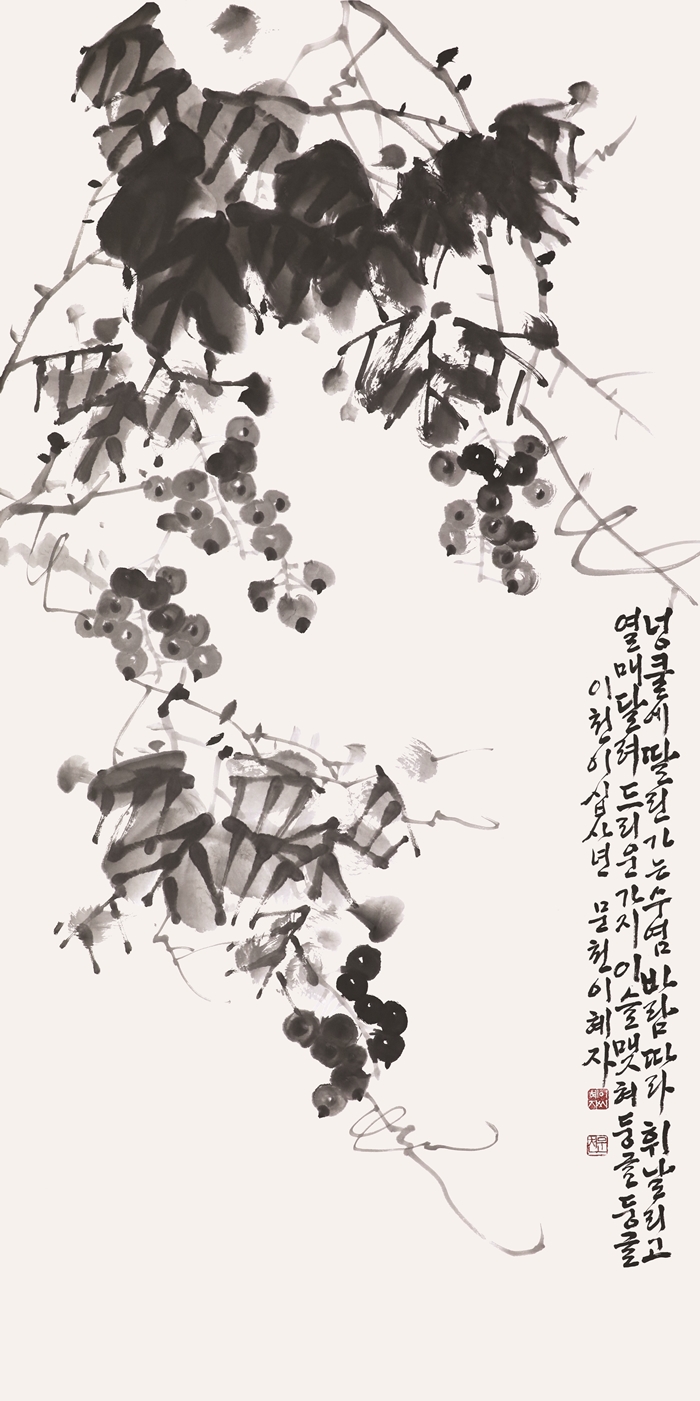 넝쿨에 딸린 가는수염 바람 따라 휘날리고
열매 달려 드리운 가지 이슬 맺혀 둥글둥글
이천이십사년 문천 이혜자